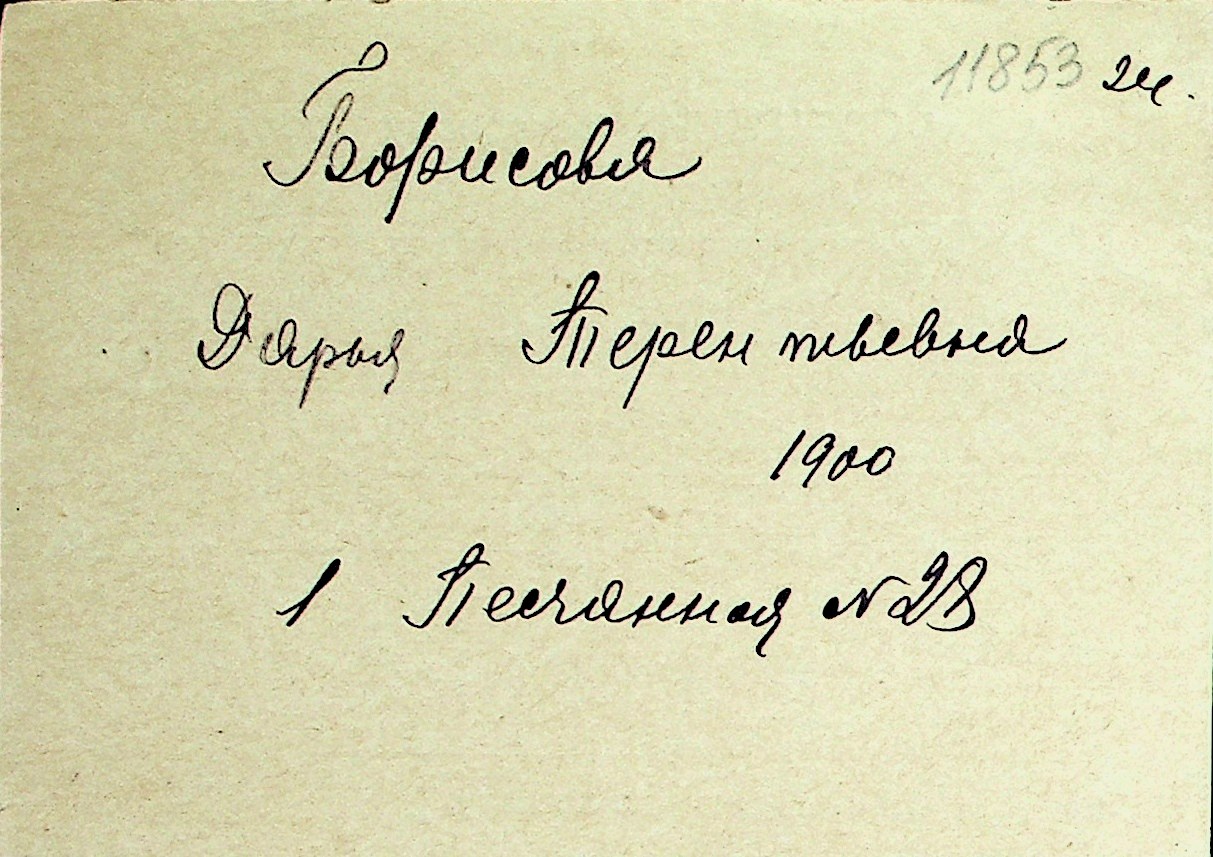 11853 эк.
Борисова
Дарья Терентьевна
1900
1 Песчанная № 28